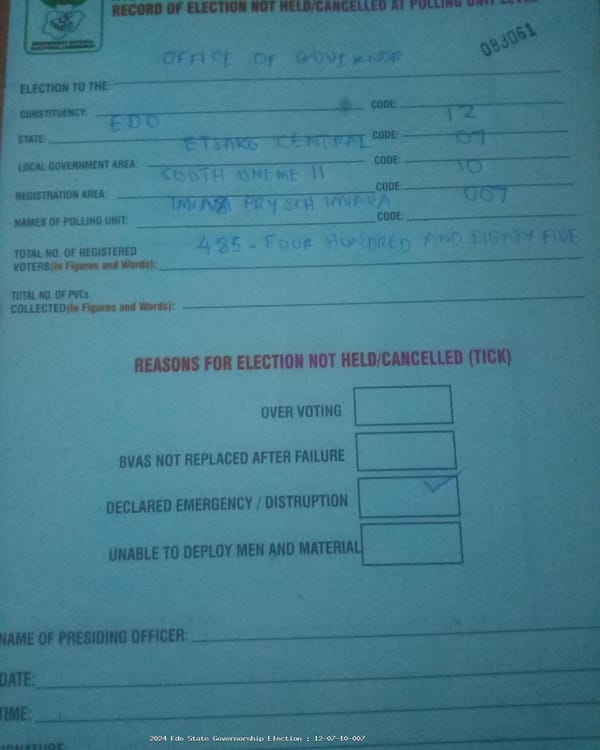 RECORD OF ELECTION NOT HELD/CANCELLED AT POLLING UNIT LEVEL
INDEPENDENT NATIONAL ELECTORAL COMMISSION
083061
ELECTION TO THE: OFFICE OF GOVERNOR
CONSTITUENCY: CODE:
STATE: EDO CODE: 12
LOCAL GOVERNMENT AREA: ETSAKO CENTRAL CODE: 07
REGISTRATION AREA: SOUTH UNEME II CODE: 10
NAMES OF POLLING UNIT: PRY SCH IMIAVA CODE: 007
TOTAL NO. OF REGISTERED
VOTERS(In Figures and Words): 485 - FOUR HUNDRED AND EIGHTY FIVE
TOTAL NO. OF PVCs
COLLECTED(In Figures and Words):
REASONS FOR ELECTION NOT HELD/CANCELLED (TICK)
OVER VOTING
BVAS NOT REPLACED AFTER FAILURE
DECLARED EMERGENCY / DISTRUPTION
UNABLE TO DEPLOY MEN AND MATERIAL
NAME OF PRESIDING OFFICER:
DATE:
TIME:
SIGNATURE:
2024 Edo State Governorship Election : 12-07-10-007